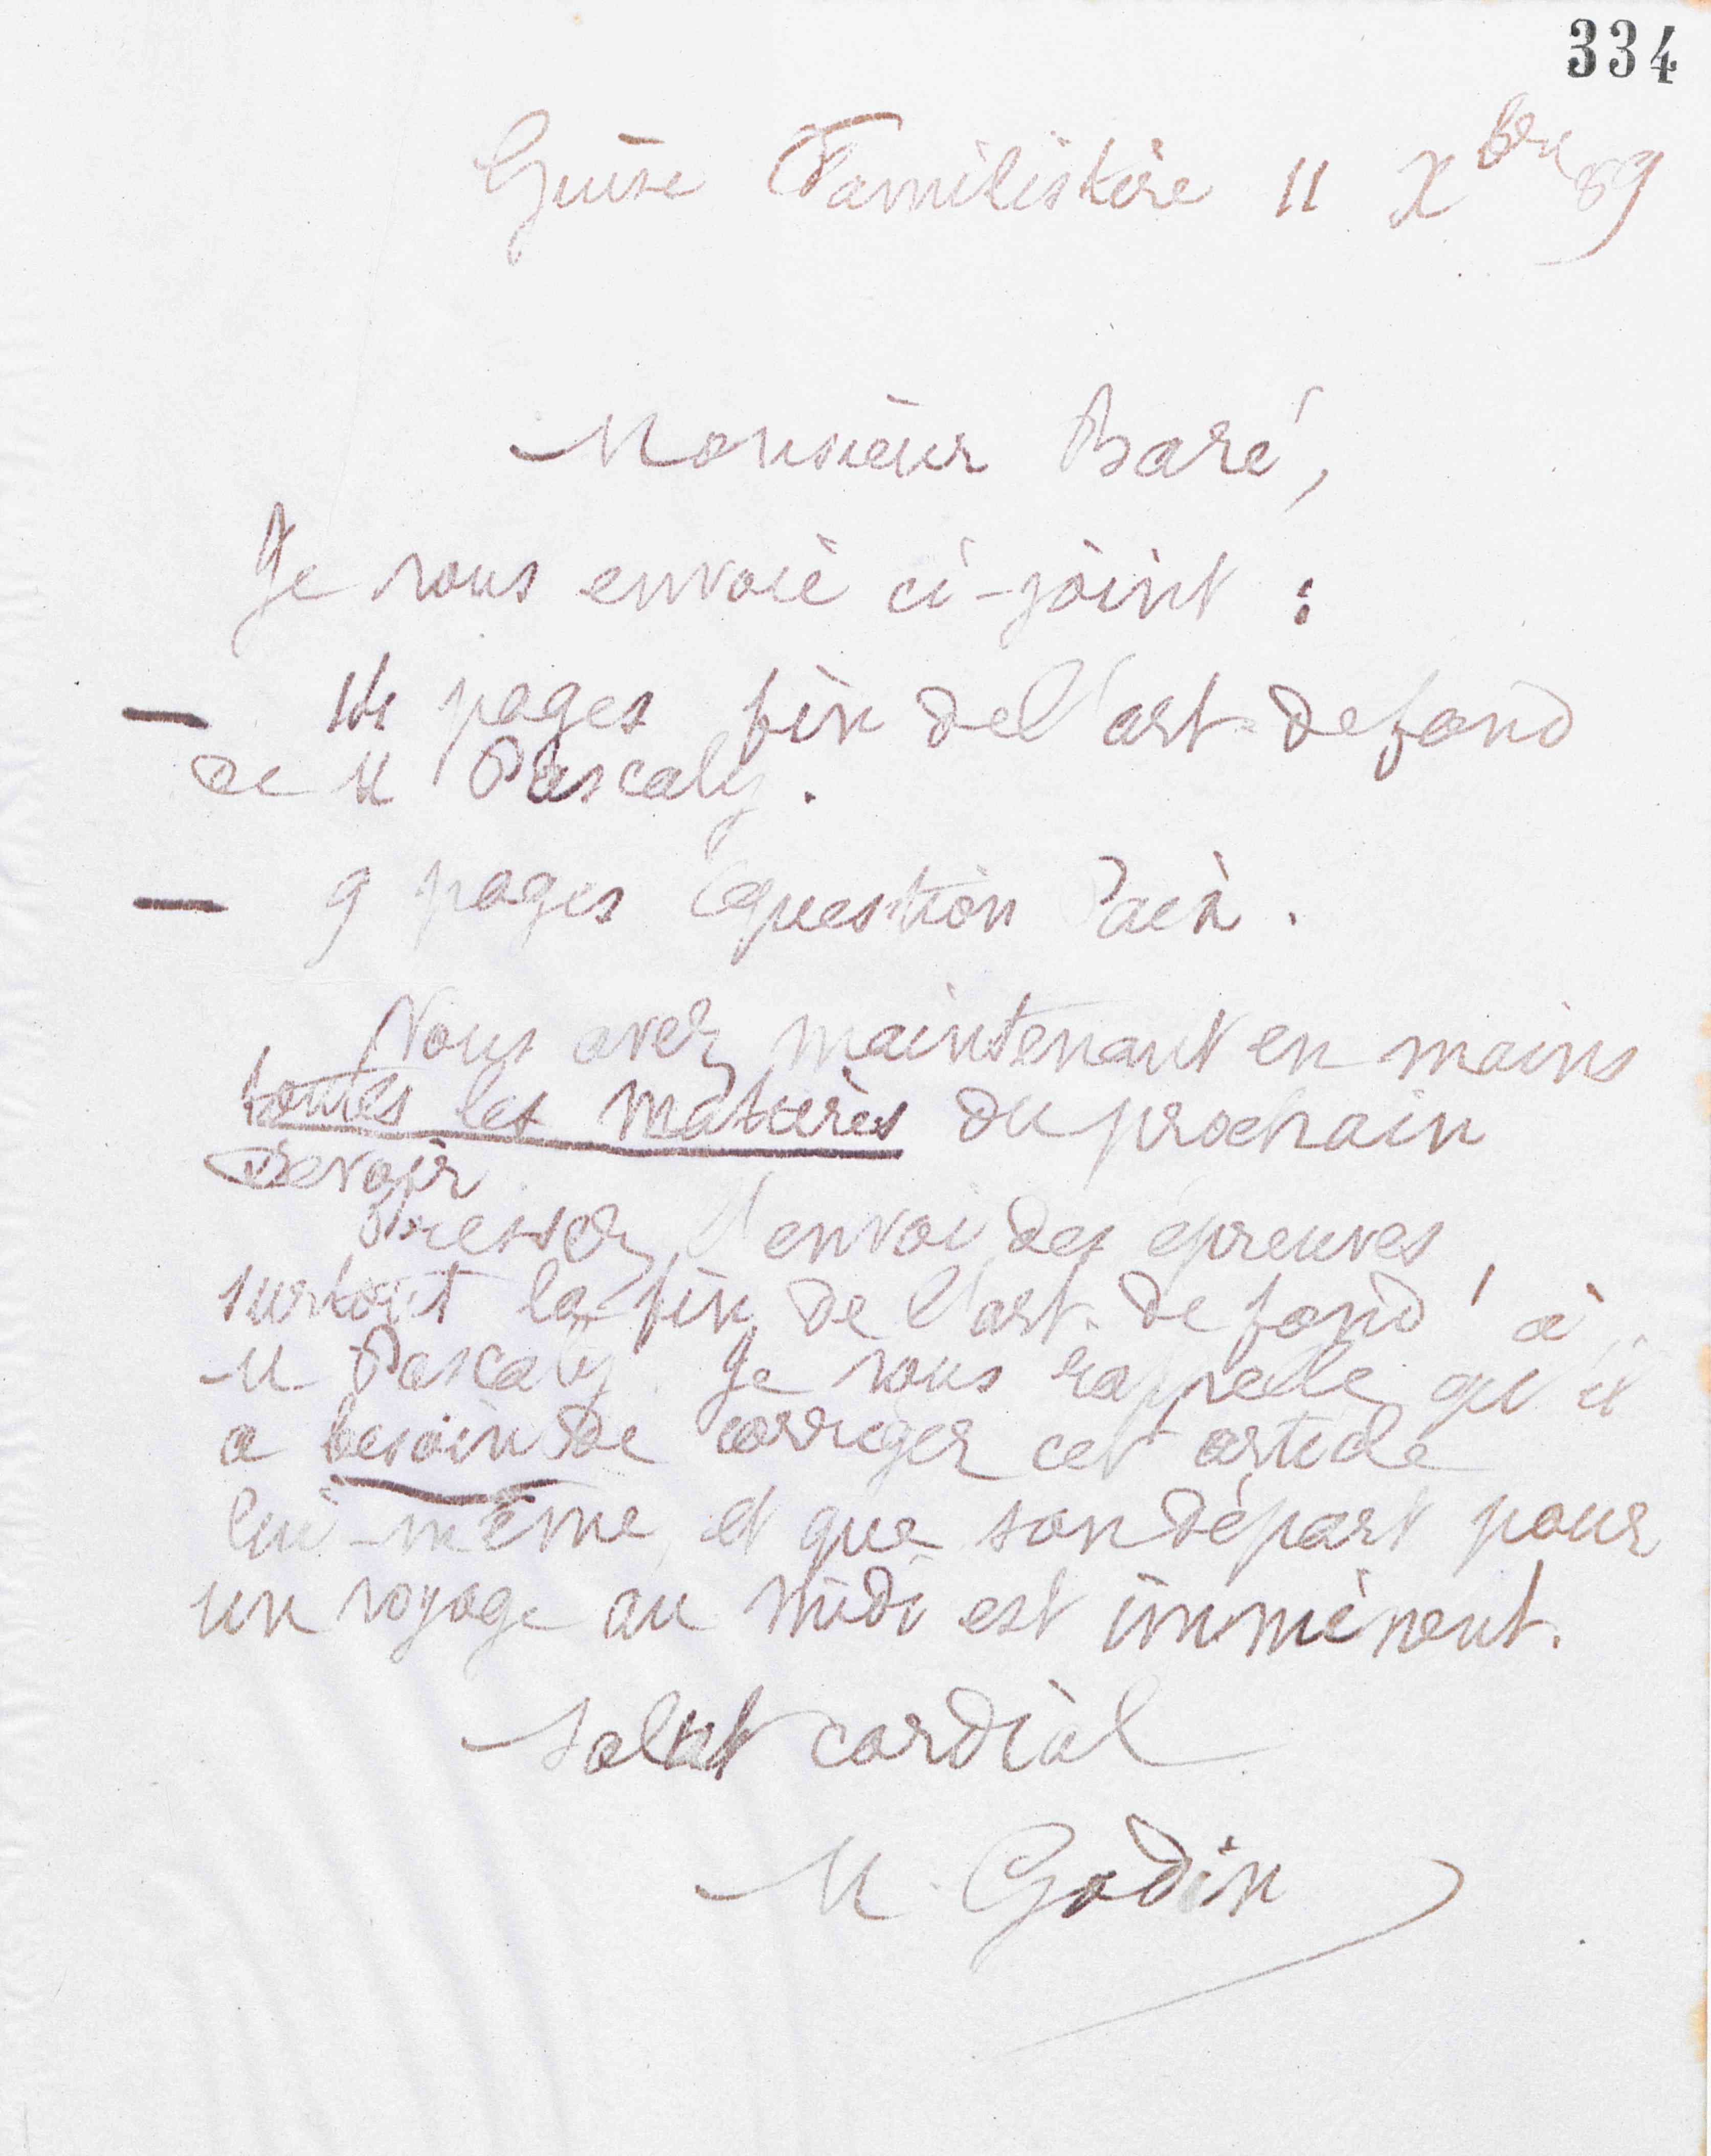 334
Guise Familistère 11 Xbre 89
Monsieur Baré,
Je vous envoie ci-joint :
— 14 pages fin de l'art. de fond
de M Pascaly.
— 9 pages question Paix.
Vous avez maintenant en mains
toutes les matières du prochain
Devoir.
Pressez l'envoi des épreuves,
surtout la fin de l'art. de fond, à
M Pascaly. Je vous rappelle qu'il
a besoin de corriger cet article
lui-même, et que son départ pour
un voyage au midi est imminent.
Salut cordial
M. Godin